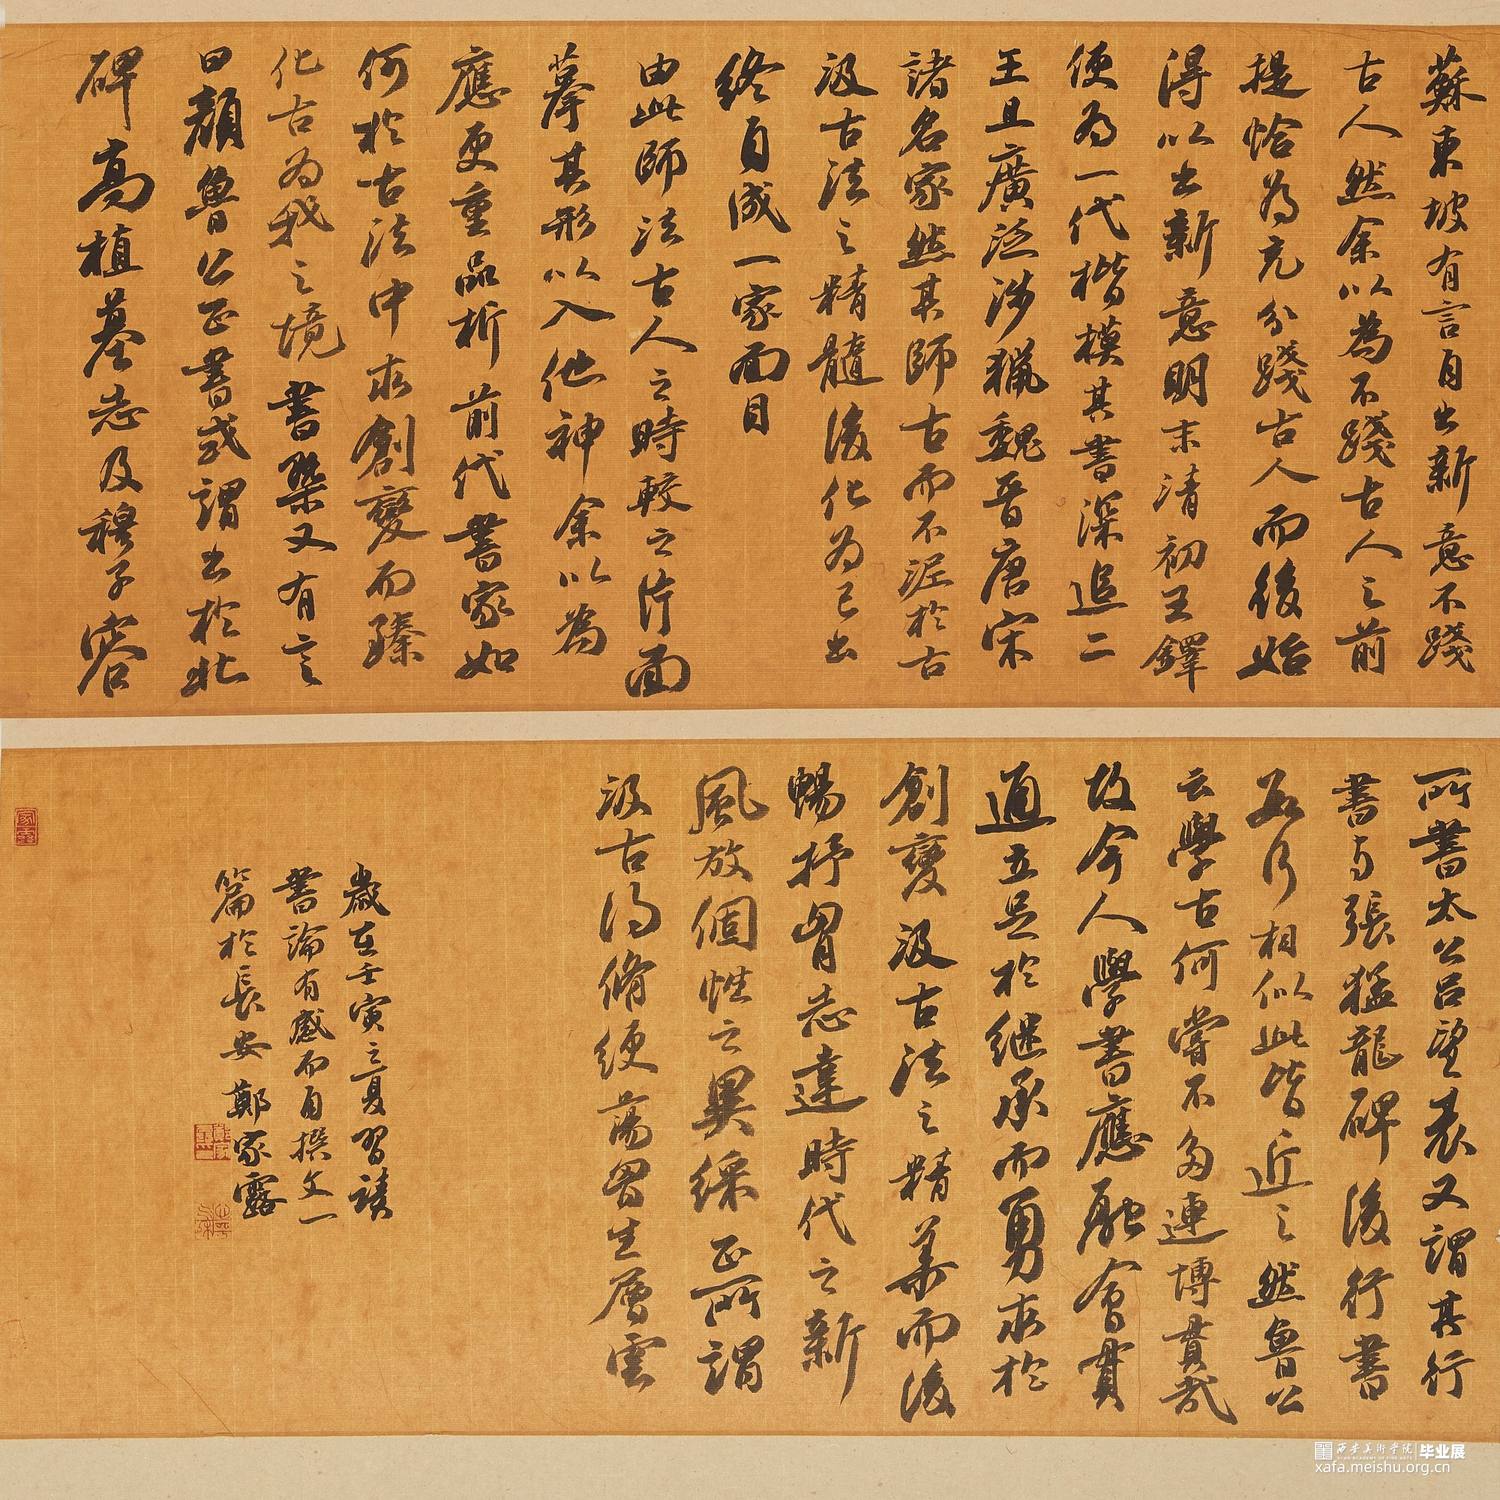 蘇東坡有言自出新意不踐
古人然余以為不踐古人之前
提恰為充分踐古人而後始
得以出新意明末清初王鐸
便為一代楷模其書深追二
王且廣泛涉獵魏晉唐宋
諸名家然其師古而不泥於古
汲古法之精髓後化為已出
終自成一家面目
由此師法古人之時較之片面
摹其形以入他神余以為
應更重品析前代書家如
何於古法中求創變而臻
化古為我之境書槩又有言
曰顏魯公正書或謂出於北
碑高植墓志及穆子容
所書太公呂望表又謂其行
書與張猛龍碑後行書
數行相似此皆近之然魯公
云學古何嘗不多連博貫哉
故今人學書應融會貫
通立足於繼承而勇求於
創變汲古法之精華而後
暢抒胃志達時代之新
風放個性之異綵正所謂
汲古得脩綆蕩胷生層雲
歲在壬寅之夏習讀
書論有感而自撰文一
篇於長安鄭家露
西安美術學院 毕业展
xafa.meishu.org.cn